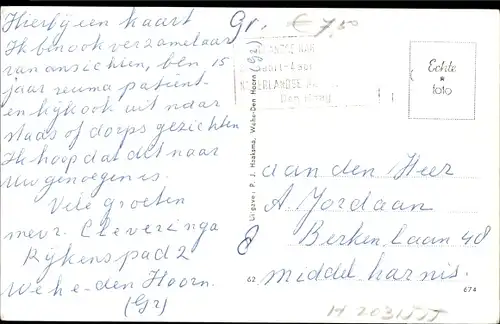 Hierbij een kaart
Ik ben ook verzamelaar
van ansichten, ben 15
jaar reuma patiënt
en kijk ook uit naar
stads of dorps gezichten
Ik hoop dat dit naar
Uw genoegen is.
Vele groeten
mevr. Cleveringa
Rijkenspad 2
Wehe-den Hoorn.
(Gr)
Gr.
€ 7,50
Den Haag
Uitgave: P. J. Haaksma, Wehe-Den Hoorn (Gr.)
62
Echte
foto
aan den Heer
A. Jordaan
Berken Laan 48
middelharnis.
674